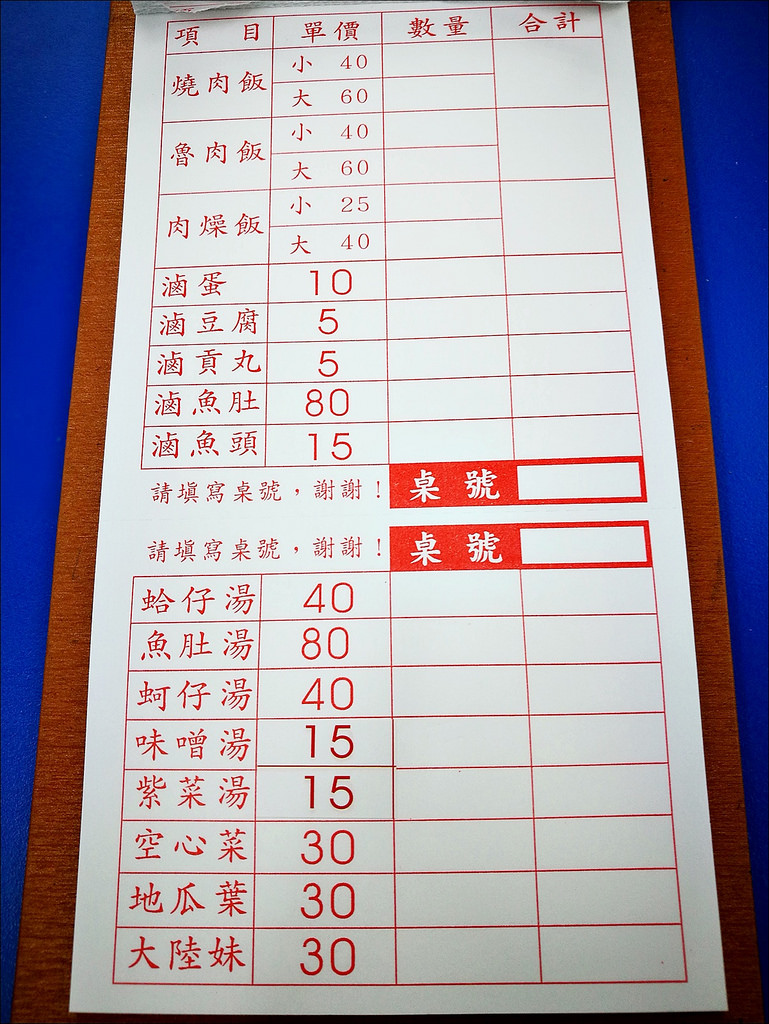 項目 單價 數量 合計
燒肉飯 小 40
大 60
魯肉飯 小 40
大 60
肉燥飯 小 25
大 40
滷蛋 10
滷豆腐 5
滷貢丸 5
滷魚肚 80
滷魚頭 15
請填寫桌號，謝謝！ 桌號
請填寫桌號，謝謝！ 桌號
蛤仔湯 40
魚肚湯 80
蚵仔湯 40
味噌湯 15
紫菜湯 15
空心菜 30
地瓜葉 30
大陸妹 30